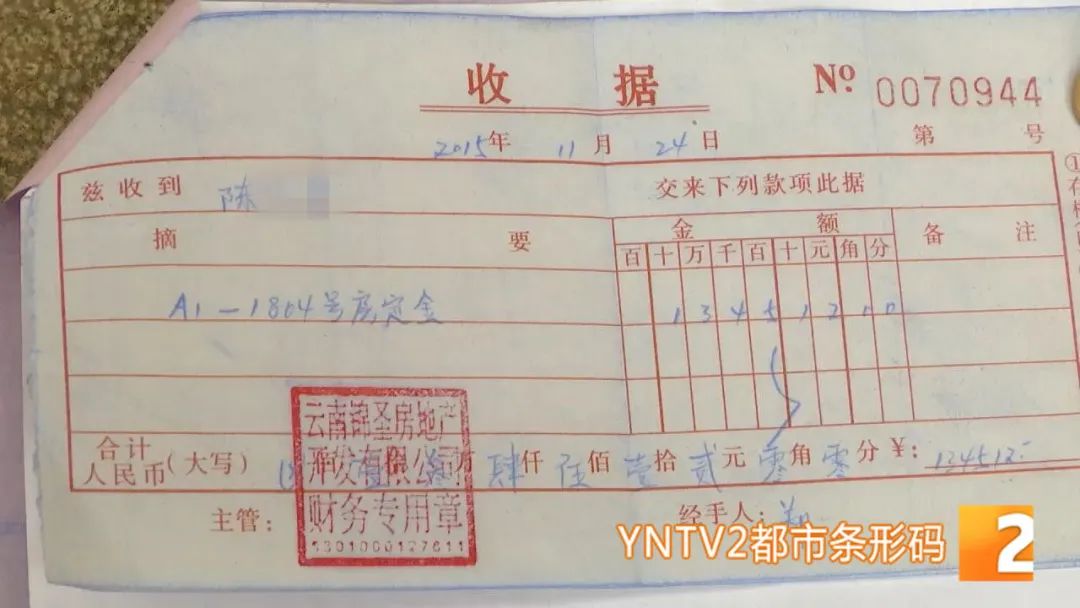 收 据
Nº 0070944
第 号
2015年 11月 24日
兹收到 陈
交来下列款项此据
摘 要
金 额
备 注
百 十 万 千 百 十 元 角 分
A1－1804号房定金
1 3 4 5 1 2 0 0
合计
人民币(大写)
万 肆仟 伍佰 壹拾 贰元 零角 零分 ¥: 134512
云南锦圣房地产
开发有限公司
财务专用章
主管:
经手人:
YNTV2都市条形码
2